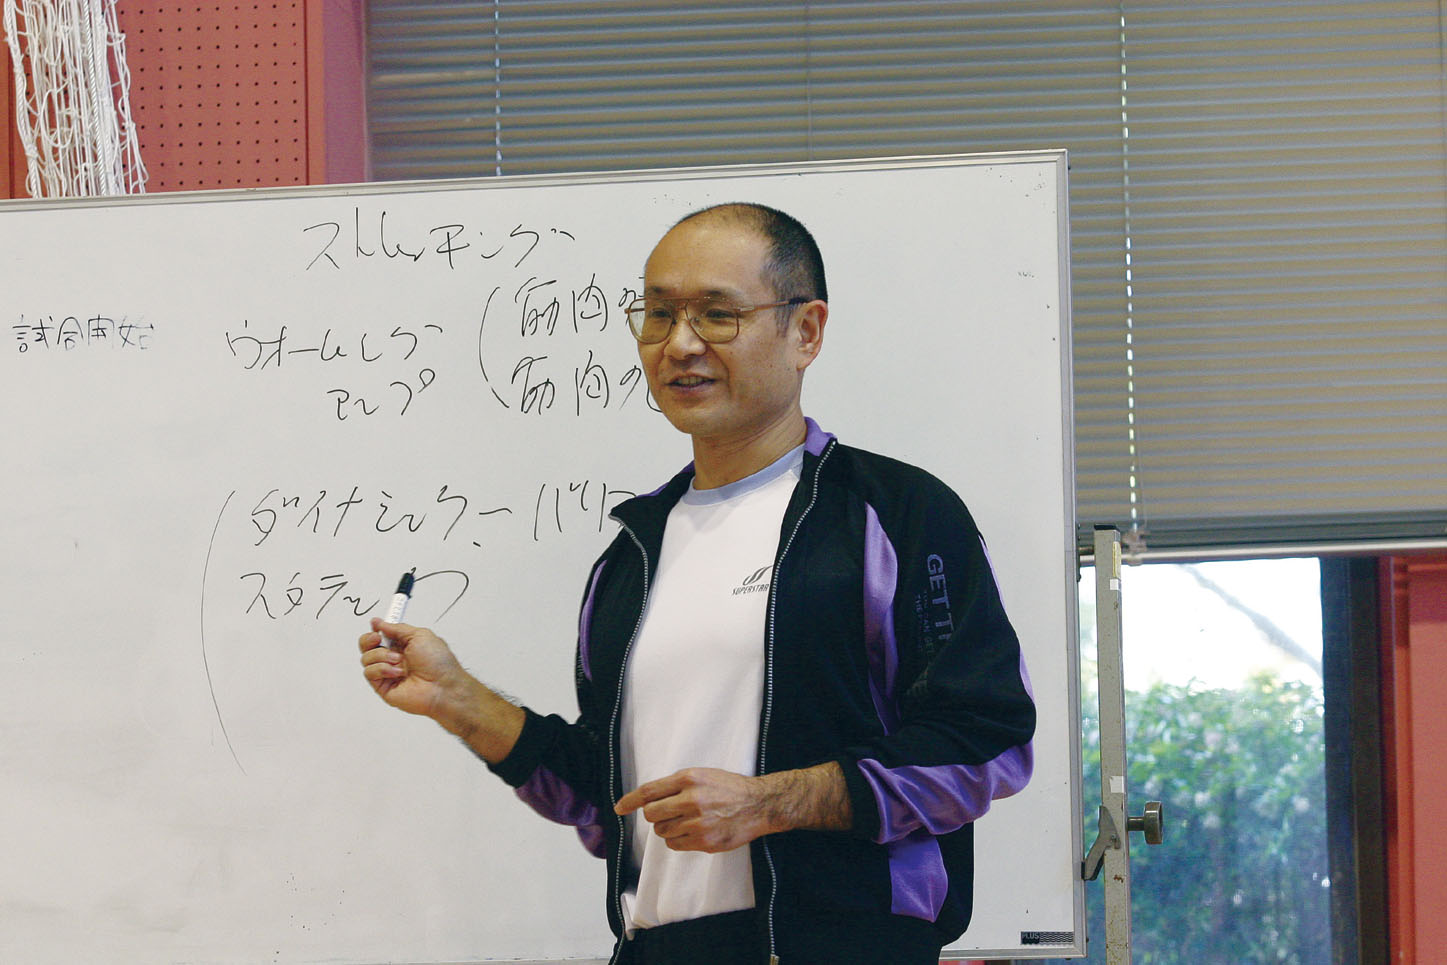 ストレッチング
試合開始
ウォーミング
アップ
筋肉の
筋肉の
ダイナミック、バリ
スタティック
SUPERSTAR
GET T
PLUS